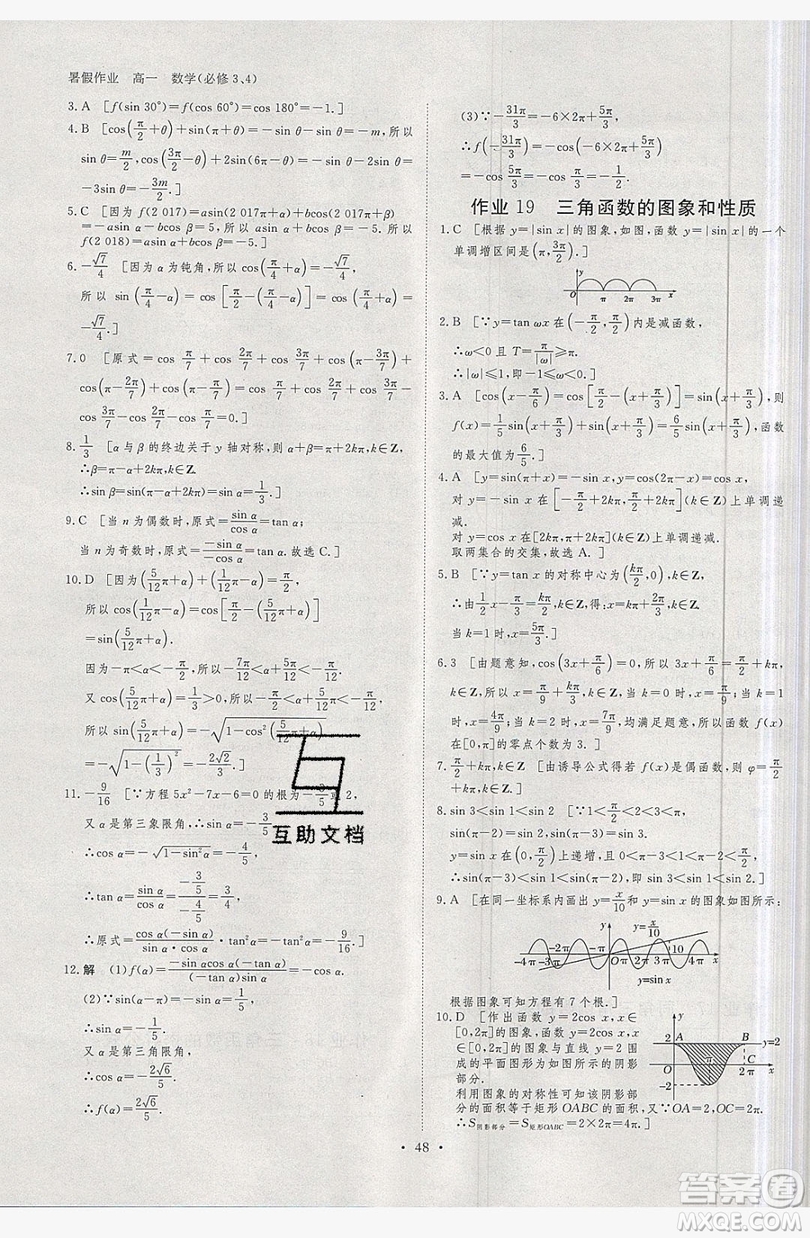 暑假作业 高一 数学(必修3、4)
3.A [f(sin 30°)=f(cos 60°)=cos 180°=-1.]
4.B [cos(π/2+θ)+sin(π+θ)=-sin θ-sin θ=-m,所以
sin θ=m/2,cos(3π/2-θ)+2sin(6π-θ)=-sin θ-2sin θ=
-3sin θ=-3m/2.]
5.C [因为f(2 017)=asin(2 017π+α)+bcos(2 017π+
β)=-asin α-bcos β
6.-√7/4 [因为α为钝角,所以cos(π/4+α)=
所以 sin(π/4-α)=cos[π/2-(π/4-α)]=cos(π/4+α)=
-√7/4.]
7.0 [原式=cos π/7+cos 2π/7+cos 3π/7+cos(π-3π/7)+
cos(π-2π/7)+cos(π-π/7)=cos π/7+cos 2π/7+cos 3π/7-
cos 3π/7-cos 2π/7-cos π/7=0.]
8.1/3 [α与β的终边关于y轴对称,则α+β=π+2kπ,k∈Z
∴β=π-α+2kπ,k∈Z.
∴sin β=sin(π-α+2kπ)=sin α=1/3.]
9.C [当n为偶数时,原式=sin α/cos α=tan α;
当n为奇数时,原式=-sin α/-cos α=tan α.故选C.]
10.D [因为(5/12π+α)+(π/12-α)=π/2,
所以cos(π/12-α)=cos[π/2-(5/12π+α)]
=sin(5/12π+α).
因为-π<α<-π/2,所以-7π/12<α+5π/12<-π/12.
又cos(5/12π+α)=1/3>0,所以-π/2<α+5π/12<-π/12,
所以sin(5/12π+α)=-√1-cos²(5/12π+α)
=-√1-(1/3)²=-2√2/3.]
11.-9/16 [∵方程5x²-7x-6=0的根为-3/5或2,
又α是第三象限角,∴sin α=-3/5
∴cos α=-√1-sin²α=-4/5,
∴tan α=sin α/cos α=-3/5/-4/5=3/4,
∴原式=cos α(-sin α)/sin α·cos α·tan²α=-tan²α=-9/16.]
12.解 (1)f(α)=-sin αcos α(-tan α)/(-tan α)sin α=-cos α.
(2)∵sin(α-π)=-sin α=1/5,
∴sin α=-1/5.
又α是第三象限角,
∴cos α=-2√6/5.
∴f(α)=2√6/5.
(3)∵-31π/3=-6×2π+5π/3,
∴f(-31π/3)=-cos(-6×2π+5π/3)
=-cos 5π/3=-cos π/3=-1/2.
作业19 三角函数的图象和性质
1.C [根据y=|sin x|的图象,如图,函数y=|sin x|的一个
单调增区间是(π,3π/2).]
y
O π 2π 3π x
2.B [∵y=tan ωx在(-π/2,π/2)内是减函数,
∴ω<0且T=π/|ω|≥π.
∴|ω|≤1,即-1≤ω<0.]
3.A [cos(x-π/6)=cos[π/2-(x+π/3)]=sin(x+π/3),则
f(x)=1/5sin(x+π/3)+sin(x+π/3)=6/5sin(x+π/3),函数
的最大值为6/5.]
4.A [y=sin(π+x)=-sin x,y=cos(2π-x)=cos x,
对y=-sin x在[-π/2+2kπ,π/2+2kπ](k∈Z)上单调递
减.
对y=cos x在[2kπ,π+2kπ](k∈Z)上单调递减.
取两集合的交集,故选A.]
5.B [∵y=tan x的对称中心为(kπ/2,0),k∈Z,
∴由1/2x-π/3=kπ/2,k∈Z,得:x=kπ+2π/3,k∈Z.
当k=1时,x=5π/3.]
6.3 [由题意知,cos(3x+π/6)=0,所以3x+π/6=π/2+kπ,
k∈Z,所以x=π/9+kπ/3,k∈Z,当k=0时,x=π/9;当k=1
时,x=4π/9;当k=2时,x=7π/9,均满足题意,所以函数f(x)
在[0,π]的零点个数为3.]
7.π/2+kπ,k∈Z [由诱导公式得若为偶函数,则φ=π/2+
kπ,k∈Z.]
8.sin 3<sin 1<sin 2 [∵1<π/2<2<3<π,
sin(π-2)=sin 2,sin(π-3)=sin 3.
y=sin x在(0,π/2)上递增,且0<π-3<1<π-2<π/2,
∴sin(π-3)<sin 1<sin(π-2),即sin 3<sin 1<sin 2.]
9.A [在同一坐标系内画出y=x/10和y=sin x的图象如图所示:
y y=x/10
-4π -3π -2π -π O π 2π 3π 10 4π x
y=sin x
根据图象可知方程有7个根.]
10.D [作出函数y=2cos x,x∈
[0,2π]的图象,函数y=2cos x,x∈
[0,2π]的图象与直线y=2围
成的平面图形为如图所示的阴影
部分.
利用图象的对称性可知该阴影
部分的面积等于矩形OABC的面积,又∵OA=2,OC=2π,
∴S阴影部分=S矩形OABC=2×2π=4π.]
y
2 A B y=2
O π C 2π x
-2
· 48 ·
互助文档
答案圈
MXQE.COM